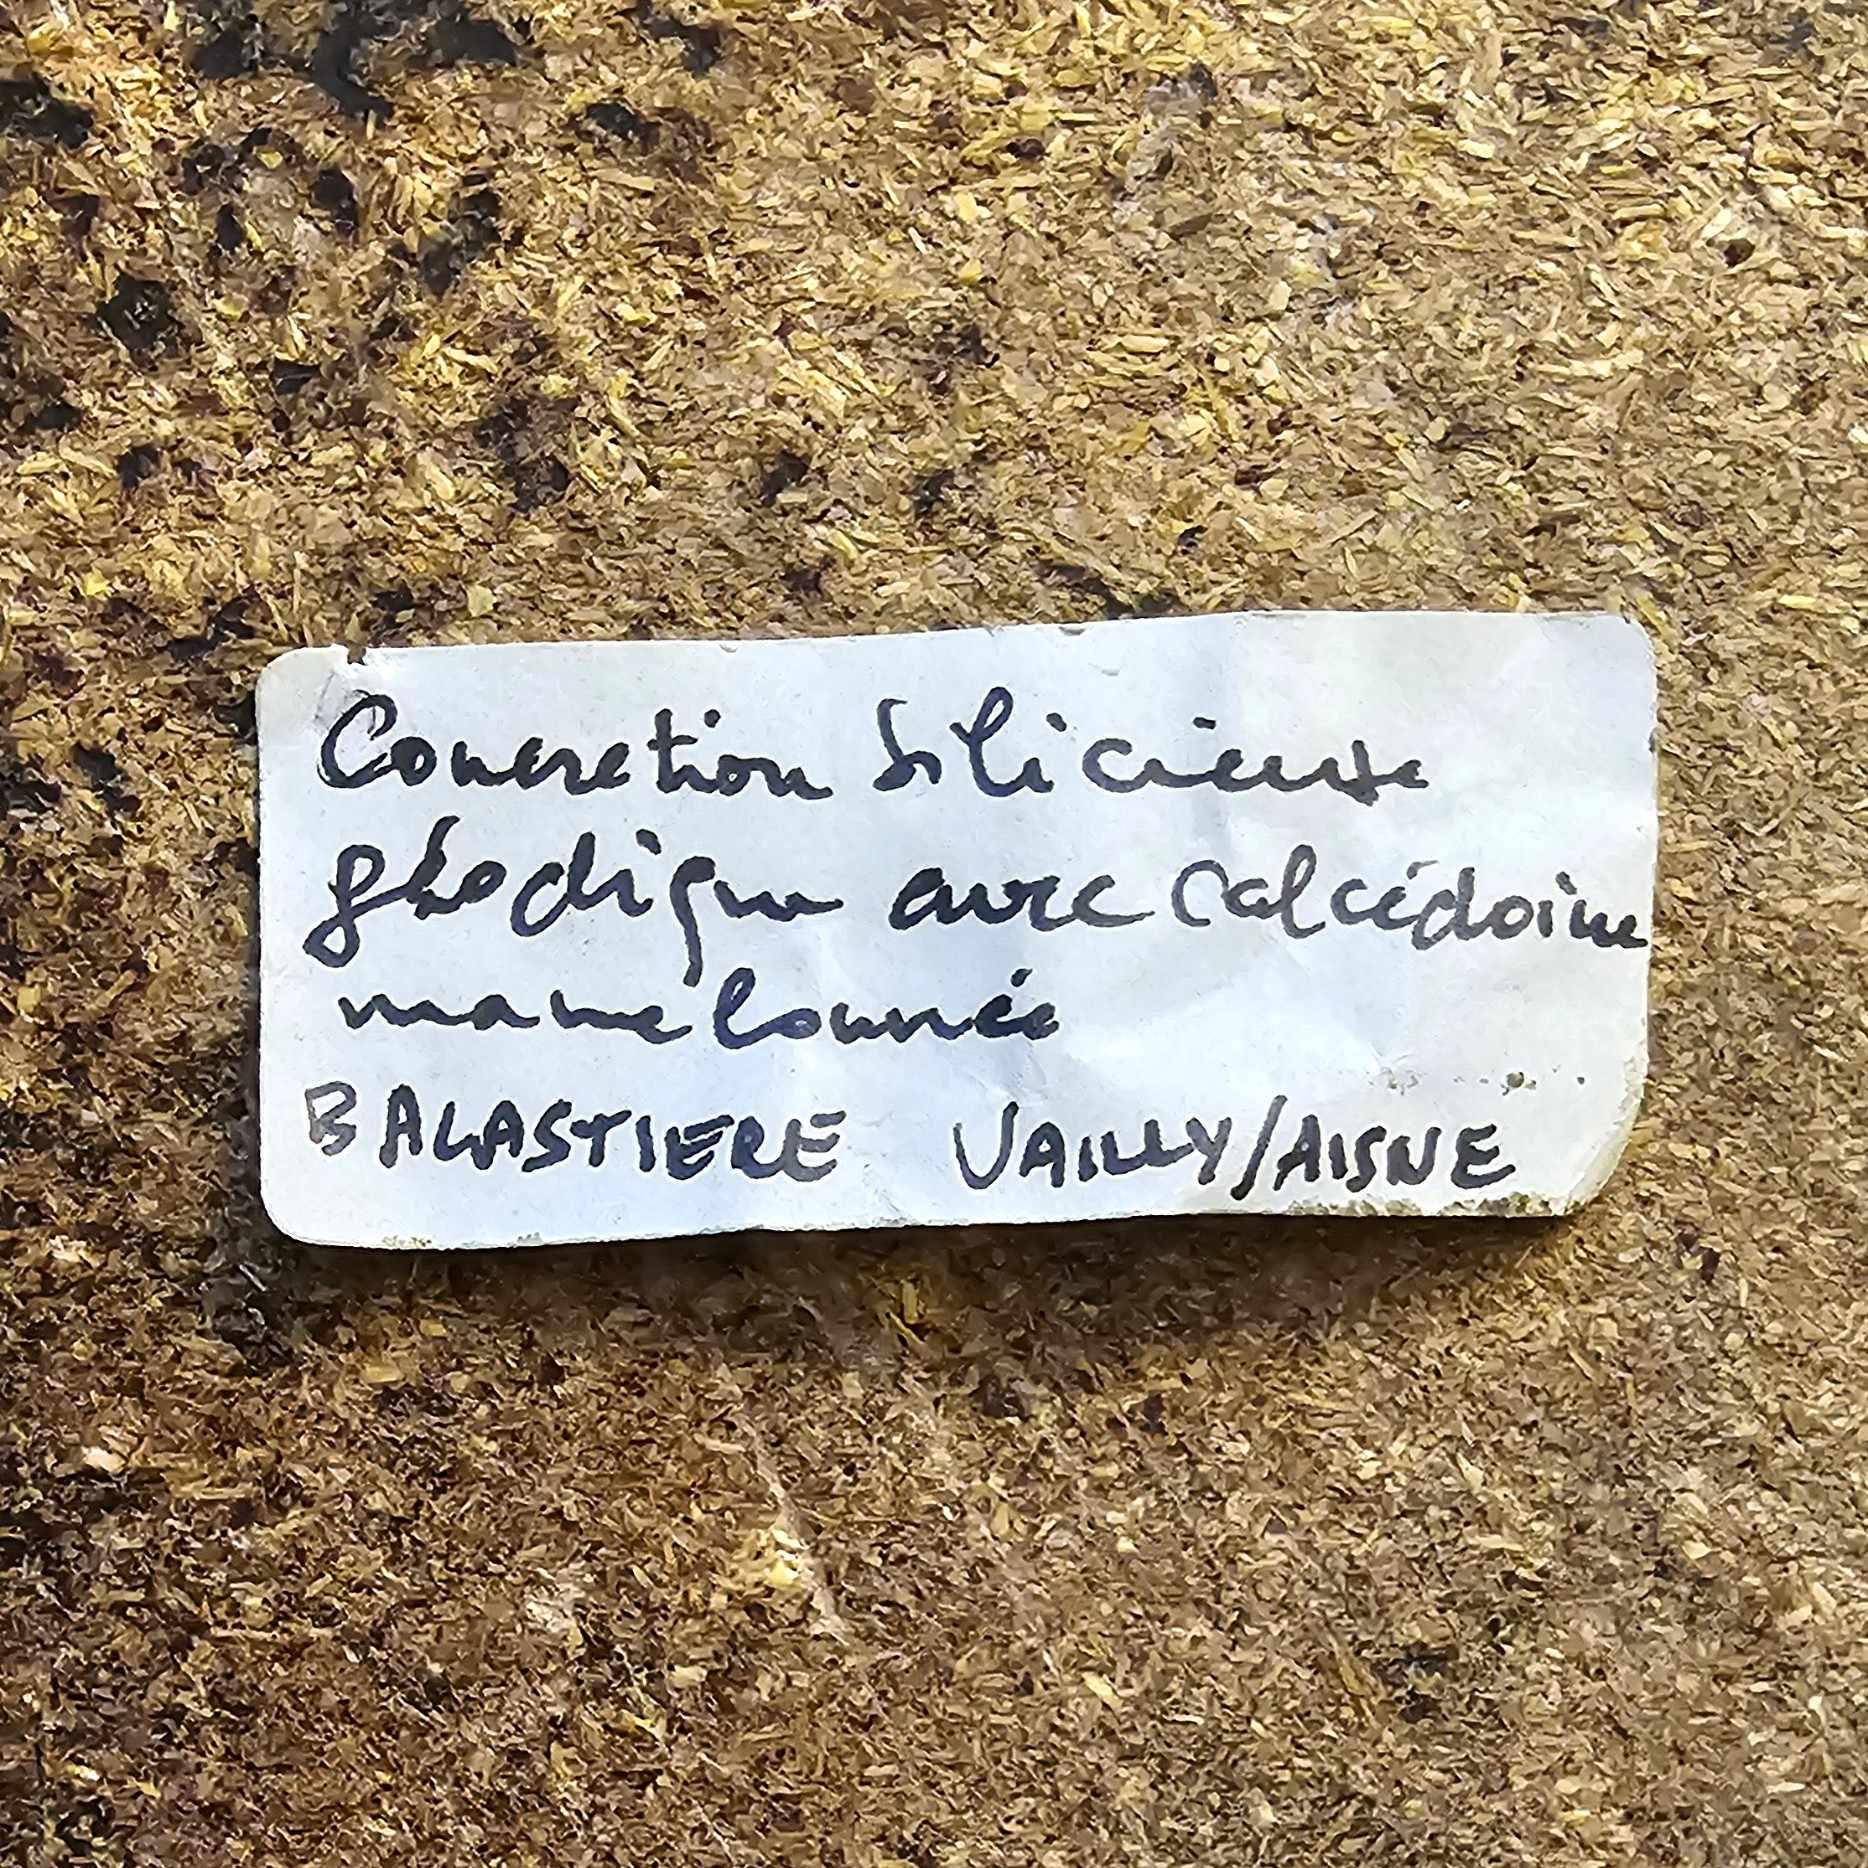 Concretion Silicieuse
géodique avec Calcédoine
mamelonnée
BALASTIERE VAILLY/AISNE